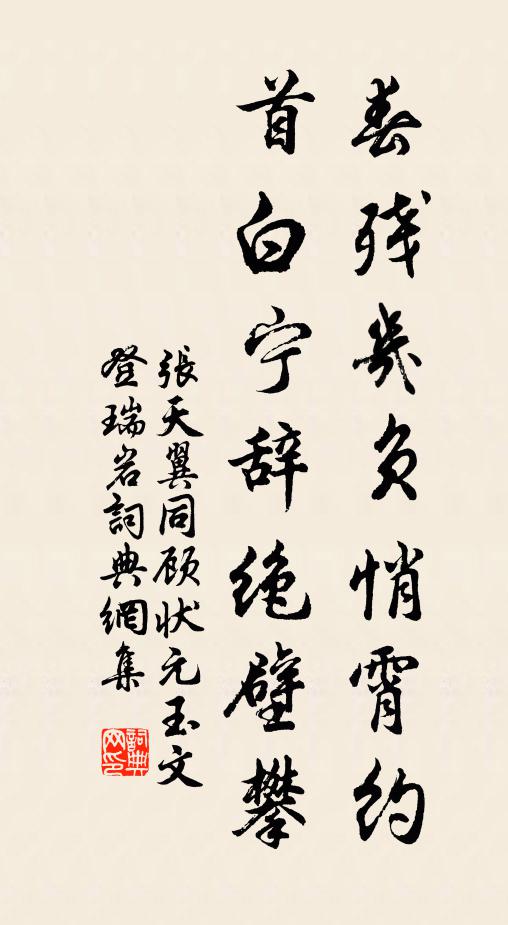 春残幾负悄霄约
首白宁辞绝壁攀
張天翼同顾状元玉文
登瑞岩詞典網集
詞典网印